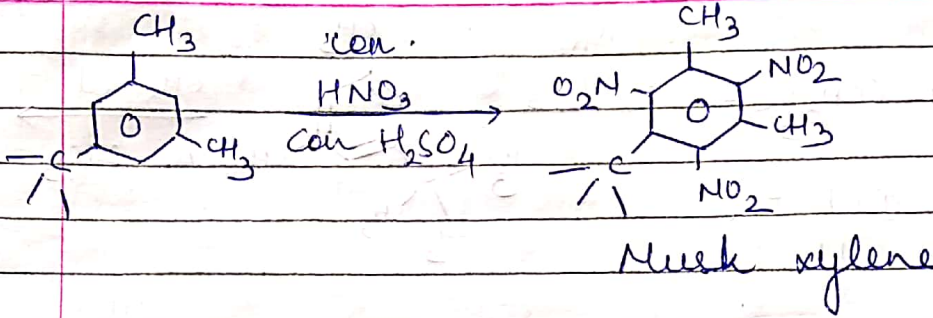 CH3
con.
HNO3
con H2SO4
CH3
C
CH3
O2N
NO2
CH3
C
NO2
Musk xylene